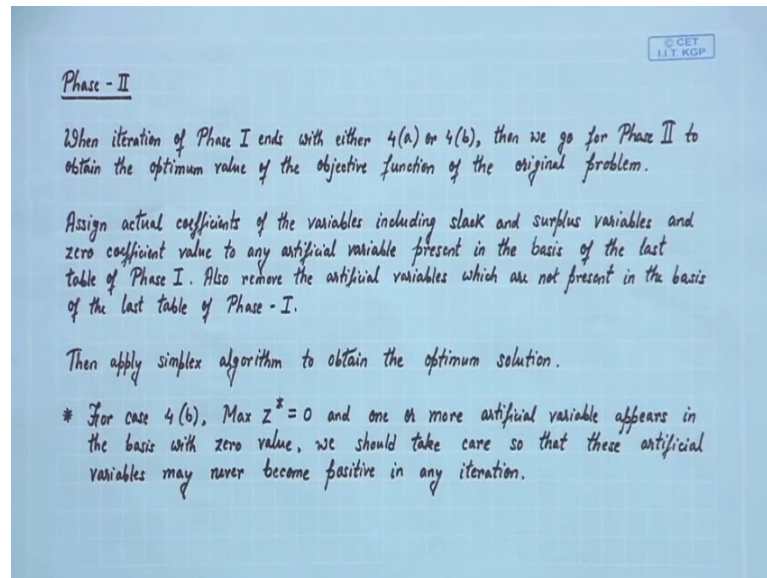 © CET
I.I.T. KGP
Phase - II
When iteration of Phase I ends with either 4(a) or 4(b), then we go for Phase II to
obtain the optimum value of the objective function of the original problem.
Assign actual coefficients of the variables including slack and surplus variables and
zero coefficient value to any artificial variable present in the basis of the last
table of Phase I. Also remove the artificial variables which are not present in the basis
of the last table of Phase - I.
Then apply simplex algorithm to obtain the optimum solution.
* For case 4(b), Max z* = 0 and one or more artificial variable appears in
the basis with zero value, we should take care so that these artificial
variables may never become positive in any iteration.